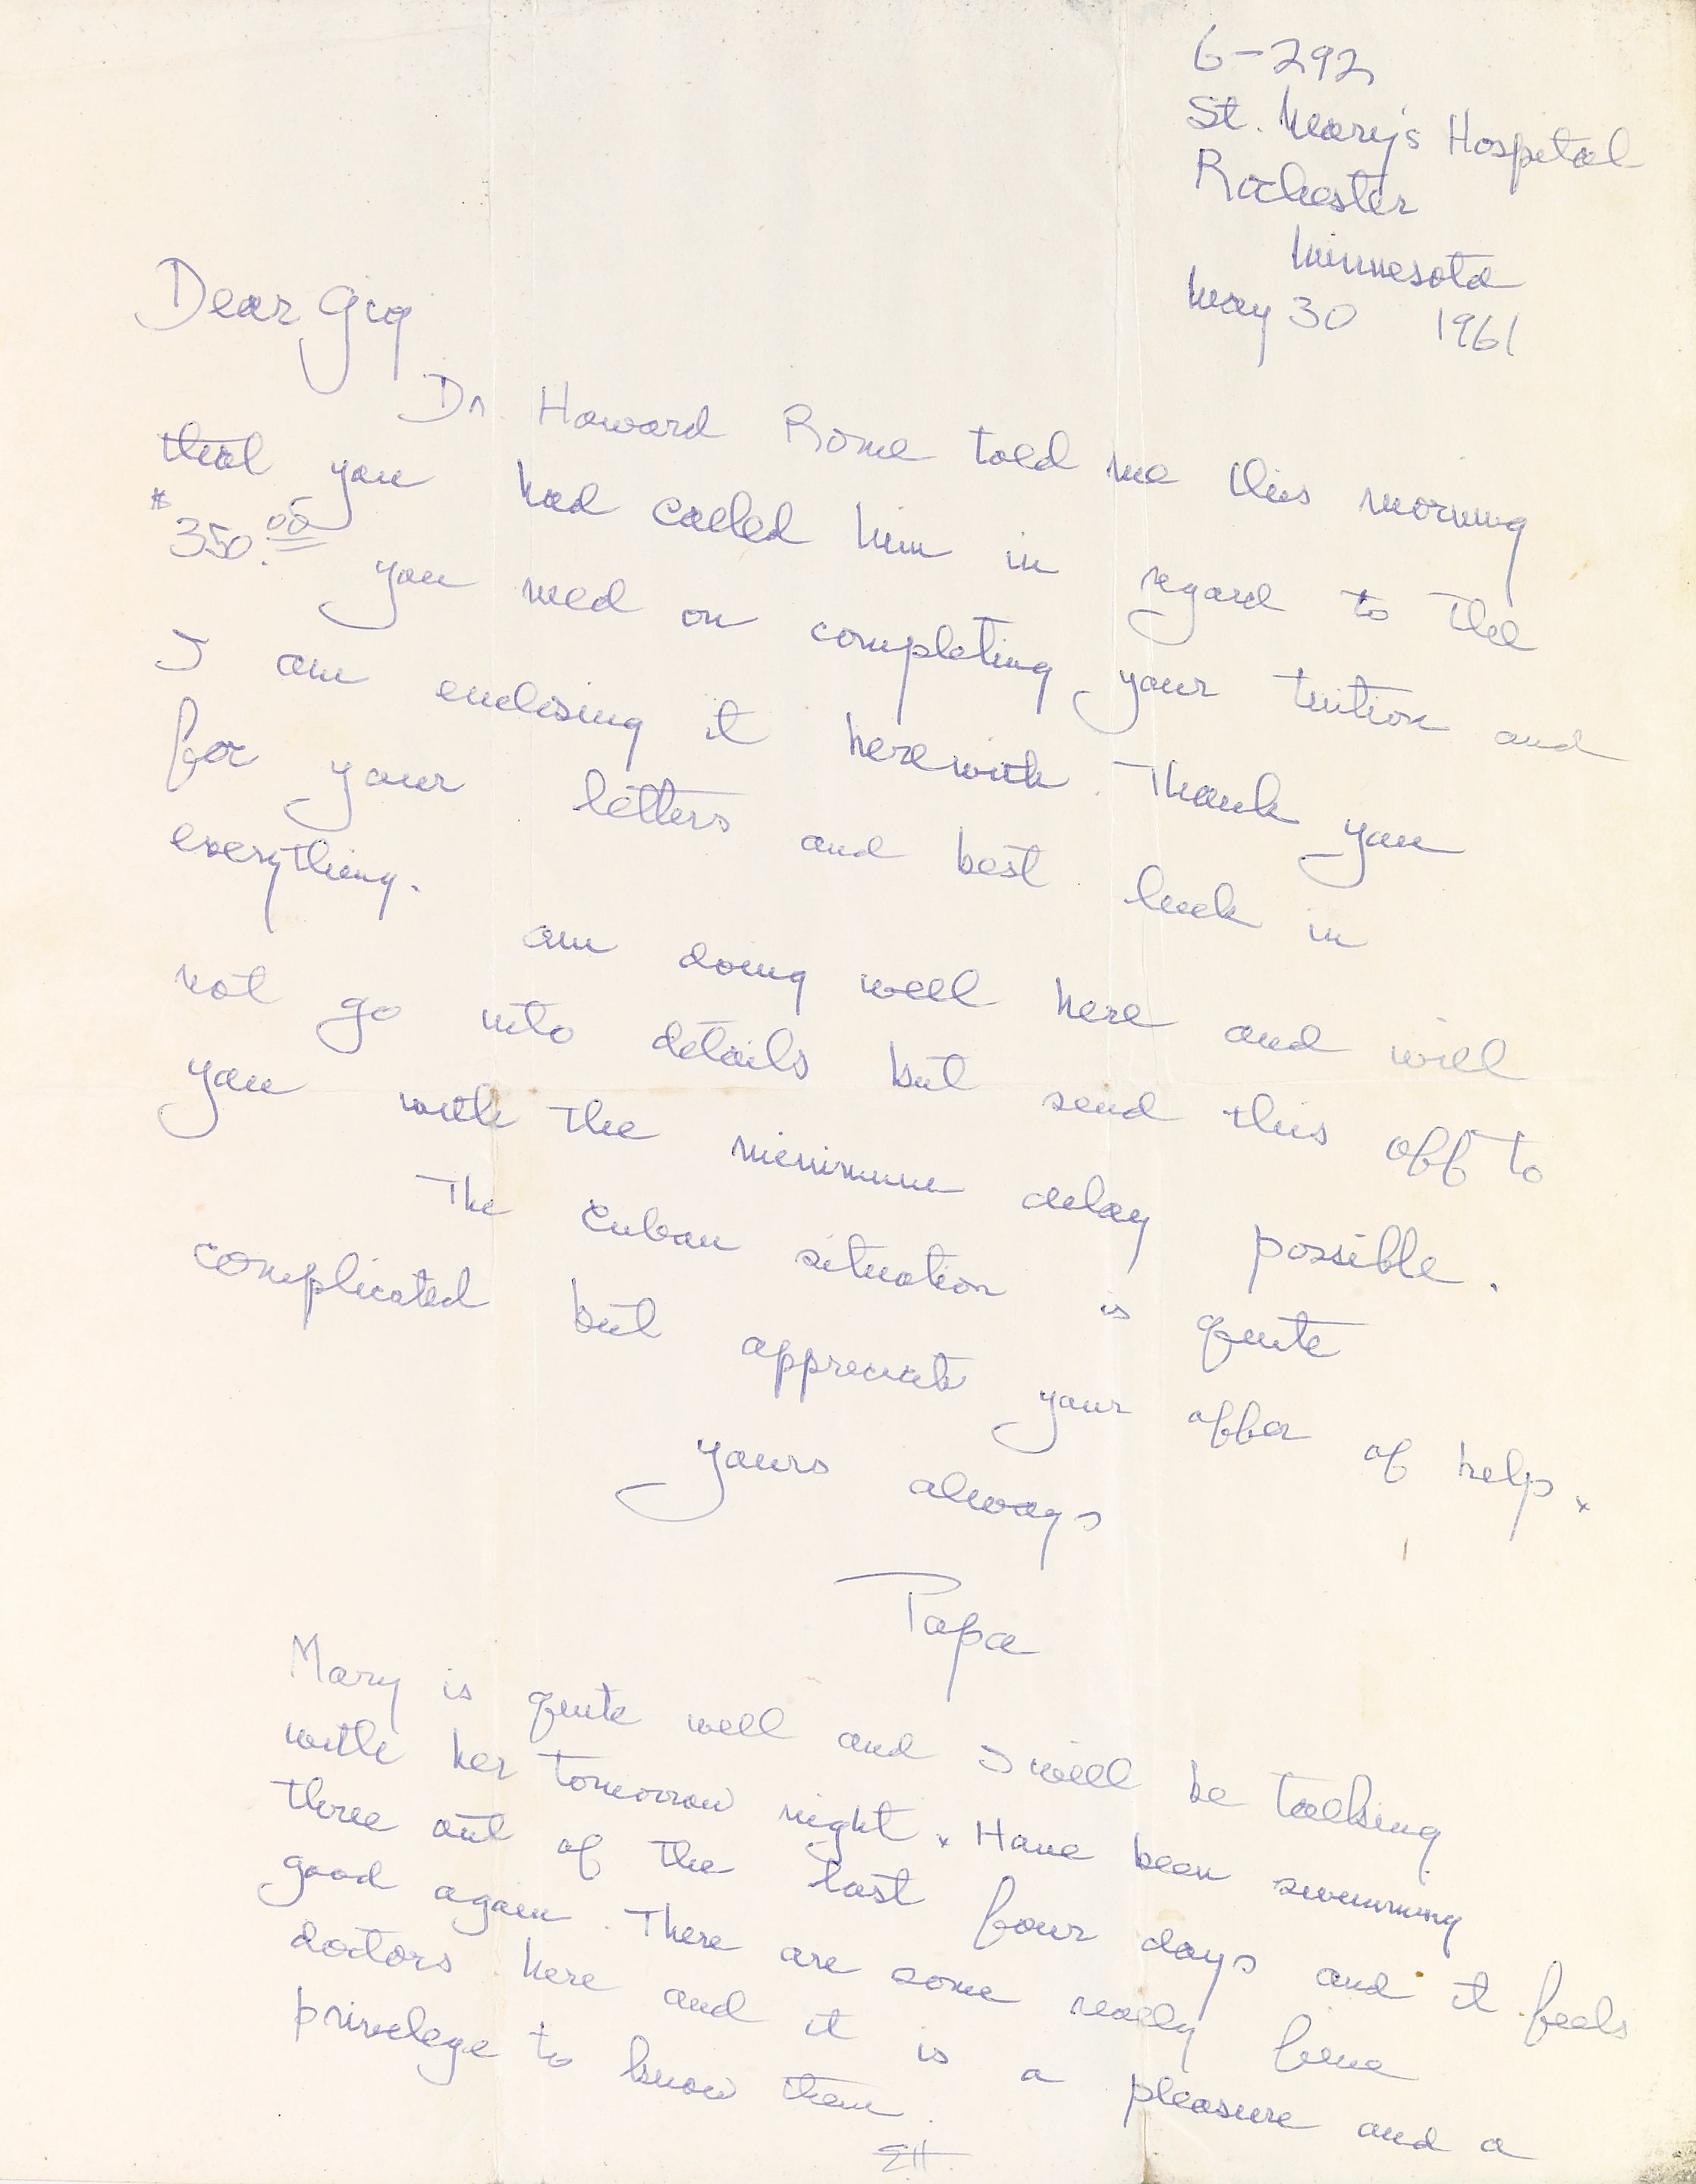 6-292
St. Mary's Hospital
Rochester
Minnesota
May 30 1961
Dear Gig
Dr. Howard Rome told me this morning
that you had called him in regard to the
$350.00 you need on completing your tuition and
I am enclosing it herewith. Thank you
for your letters and best luck in
everything.
am doing well here and will
not go into details but send this off to
you with the minimum delay possible.
The Cuban situation is quite
complicated but appreciate your offer of help.
yours always
Papa
Mary is quite well and I will be talking
with her tomorrow night. Have been swimming
three out of the last four days and it feels
good again. There are some really fine
doctors here and it is a pleasure and a
privelege to know them.
EH